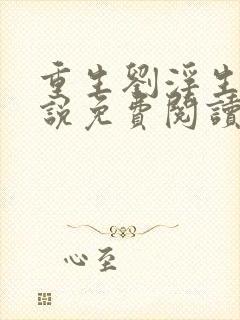 重生劉淫生
說免費閱讀
心至